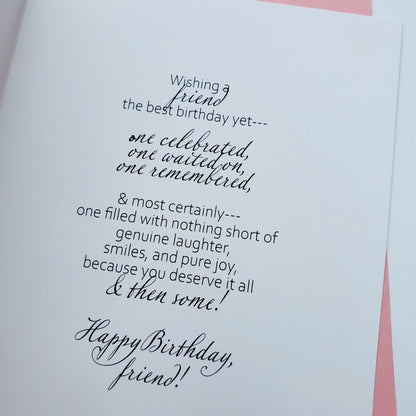 Wishing a
friend
the best birthday yet---
one celebrated,
one waited on,
one remembered,
& most certainly---
one filled with nothing short of
genuine laughter,
smiles, and pure joy,
because you deserve it all
& then some!
Happy Birthday,
friend!